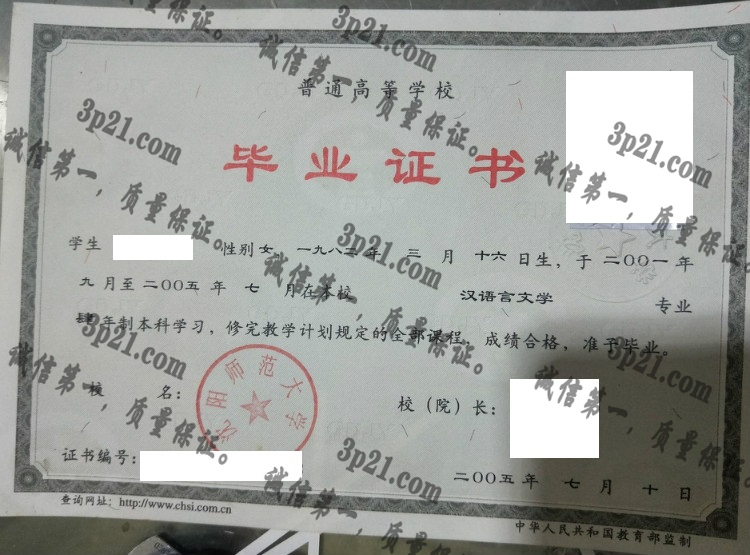 普通高等学校
毕业证书
学生 性别 女，一九八二年 三 月 十六 日生，于 二〇〇一 年
九 月至 二〇〇五 年 七 月在本校 汉语言文学 专业
肆年制本科学习，修完教学计划规定的全部课程，成绩合格，准予毕业。
校 名：
阳师范大学
校（院）长：
证书编号：
二〇〇五年 七月 十日
查询网址：http://www.chsi.com.cn
中华人民共和国教育部监制
3p21.com
诚信第一，质量保证。
3p21.com
诚信第一，质量保证。
3p21.com
诚信第一，质量保证。
3p21.com
诚信第一，质量保证。
3p21.com
诚信第一，质量保证。
3p21.com
诚信第一，质量保证。
3p21.com
诚信第一，质量保证。